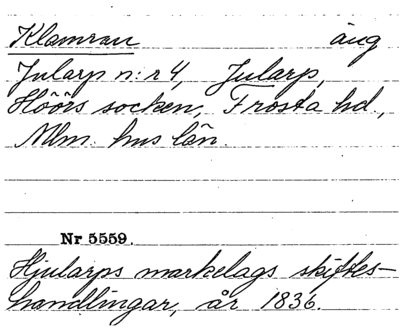 Klamran äng
Jularp n:r 4, Jularp,
Höörs socken, Frosta hd.,
Mlm. hus län.
Nr 5559.
Hjularps markelags skiftes-
handlingar, år 1836.